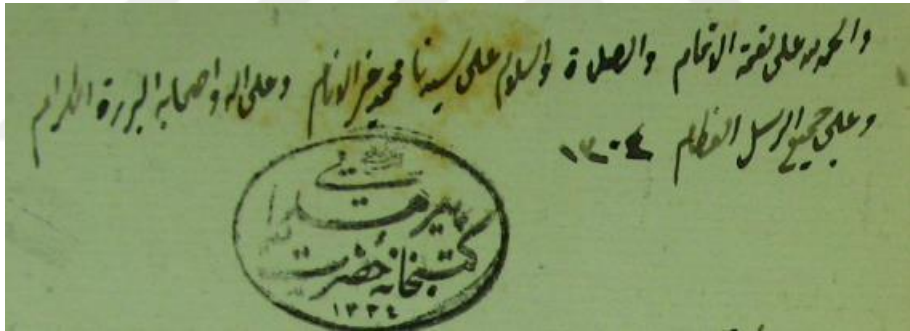 والحمد لله على نعمة الاتمام والصلاة والسلام على سيدنا محمد خير الانام وعلى اله واصحابه البررة الكرام
وعلى جميع الرسل العظام ١٣٠٤
كتبخانه حضرت
١٣٣٤